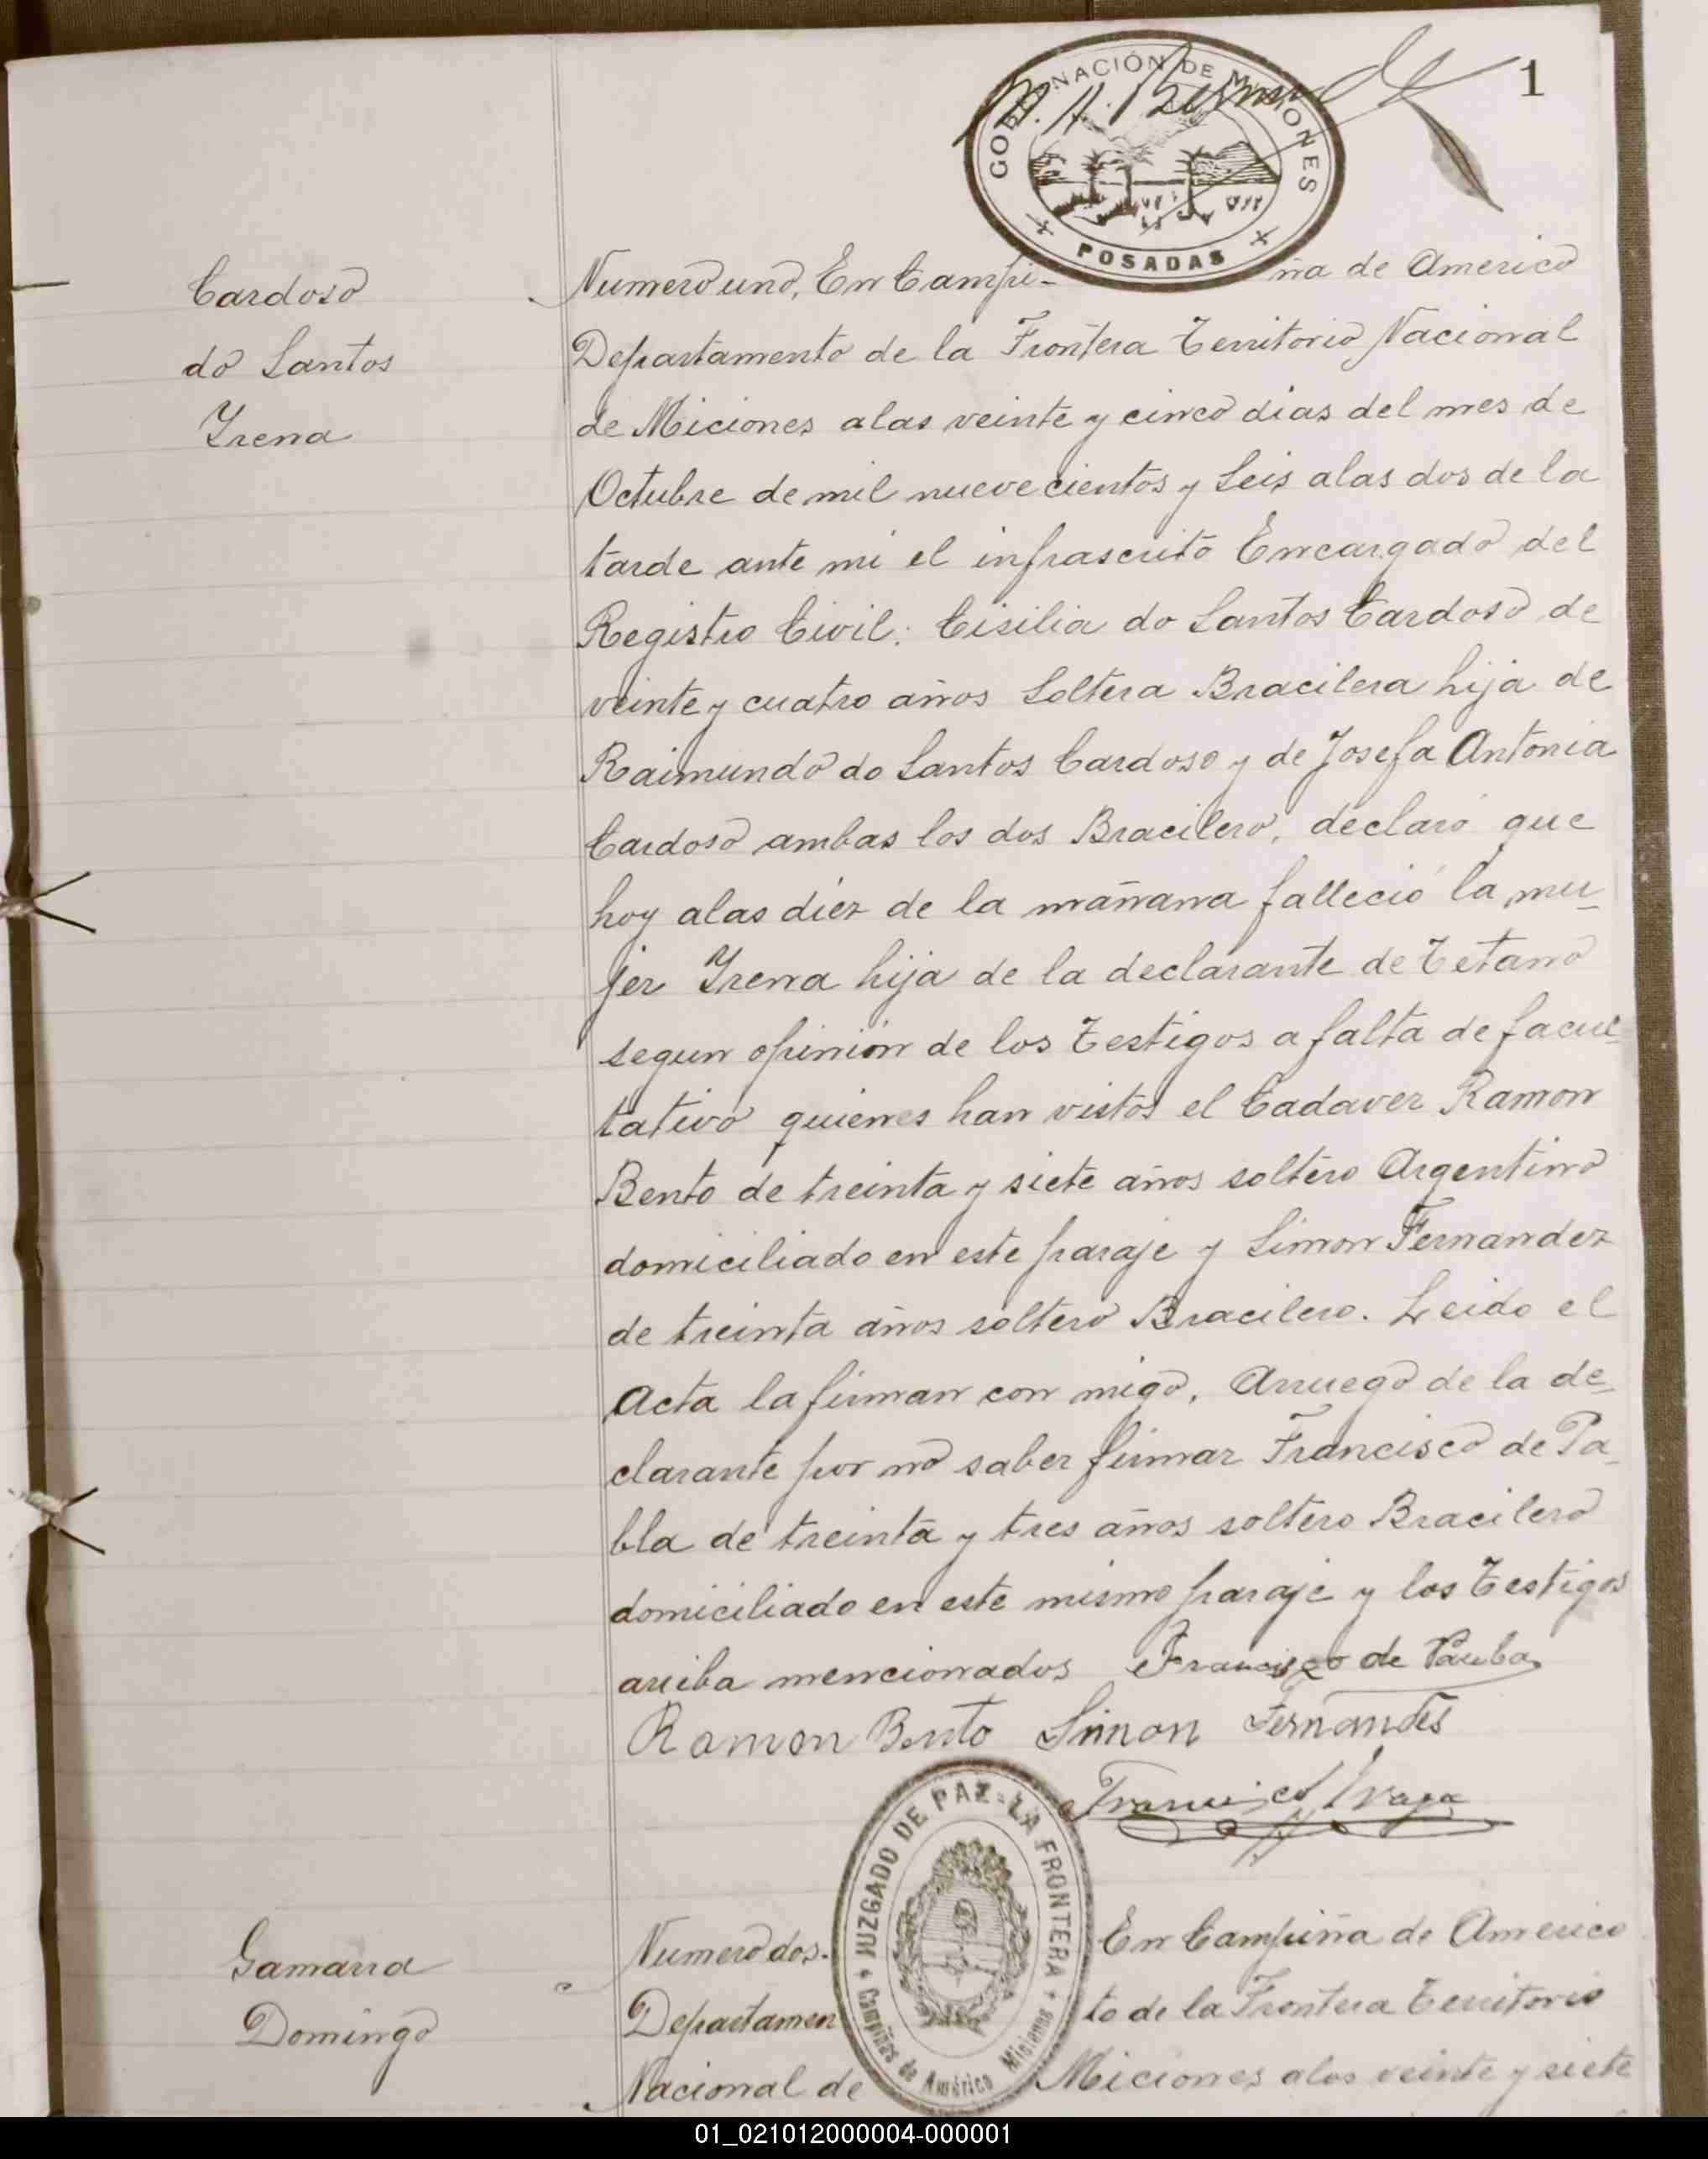 1
GOBERNACIÓN DE MISIONES
POSADAS
Cardoso
do Santos
Yrena
Numero uno, En Campi- ña de Americo
Departamento de la Frontera Territorio Nacional
de Miciones alas veinte y cinco dias del mes de
Octubre de mil nuevecientos y Seis alas dos de la
tarde ante mi el infrascrito Encargado del
Registro Civil: Cisilia do Santos Cardoso de
veinte y cuatro años Soltera Bracilera hija de
Raimundo do Santos Cardoso y de Josefa Antonia
Cardoso ambas los dos Bracilero, declaró que
hoy alas diéz de la mañana falleció la mu-
jer Yrena hija de la declarante de Tetano
segun opinión de los Testigos a falta de facul-
tativo quienes han vistos el Cadaver Ramon
Bento de treinta y siete años soltero Argentino
domiciliado en este paraje y Simon Fernandez
de treinta años soltero Bracilero. Leido el
Acta la firman con migo, Arruego de la de-
clarante por no saber firmar Francisco de Pa-
bla de treinta y tres años soltero Bracilero
domiciliado en este mismo paraje y los Testigos
arriba mencionados Francisco de Paula
Ramon Bento Simon Fernandes
JUZGADO DE PAZ - LA FRONTERA
Campiñas de América Misiones
Gamarra
Domingo
Numero dos. En Campiña de Americo
Departamen to de la Frontera Territorio
Nacional de Miciones alos veinte y siete
01_021012000004-000001